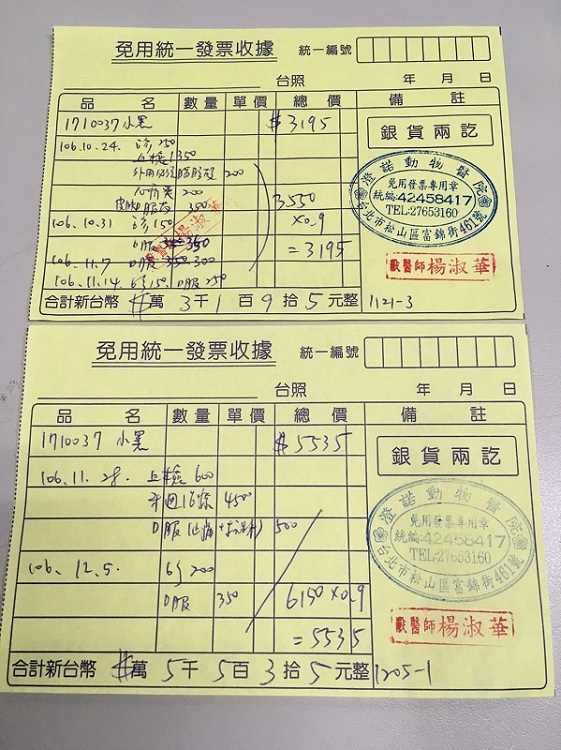 免用統一發票收據 統一編號
台照 年 月 日
品 名 數量 單價 總價 備 註
1710037 小黑 $3195
銀貨兩訖
106.10.24. 診 250
上檢 1350
200
心絲蟲 200
350 3550
106.10.31 診 150 x0.9
內服 350 = 3195
106.11.7 內服 300
106.11.14. 診 150. 內服 250
澄諾動物醫院
免用發票專用章
統編:42458417
TEL:27653160
台北市松山區富錦街461號
獸醫師 楊淑華
獸醫師 楊淑華
合計新台幣 萬 3 千 1 百 9 拾 5 元整 1121-3
免用統一發票收據 統一編號
台照 年 月 日
品 名 數量 單價 總價 備 註
1710037 小黑 $5535
銀貨兩訖
106.11.28. 上檢 600
450
內服 500
106.12.5. 診 200
內服 350 6150 x0.9
= 5535
澄諾動物醫院
免用發票專用章
統編:42458417
TEL:27653160
台北市松山區富錦街461號
獸醫師 楊淑華
合計新台幣 萬 5 千 5 百 3 拾 5 元整 1205-1